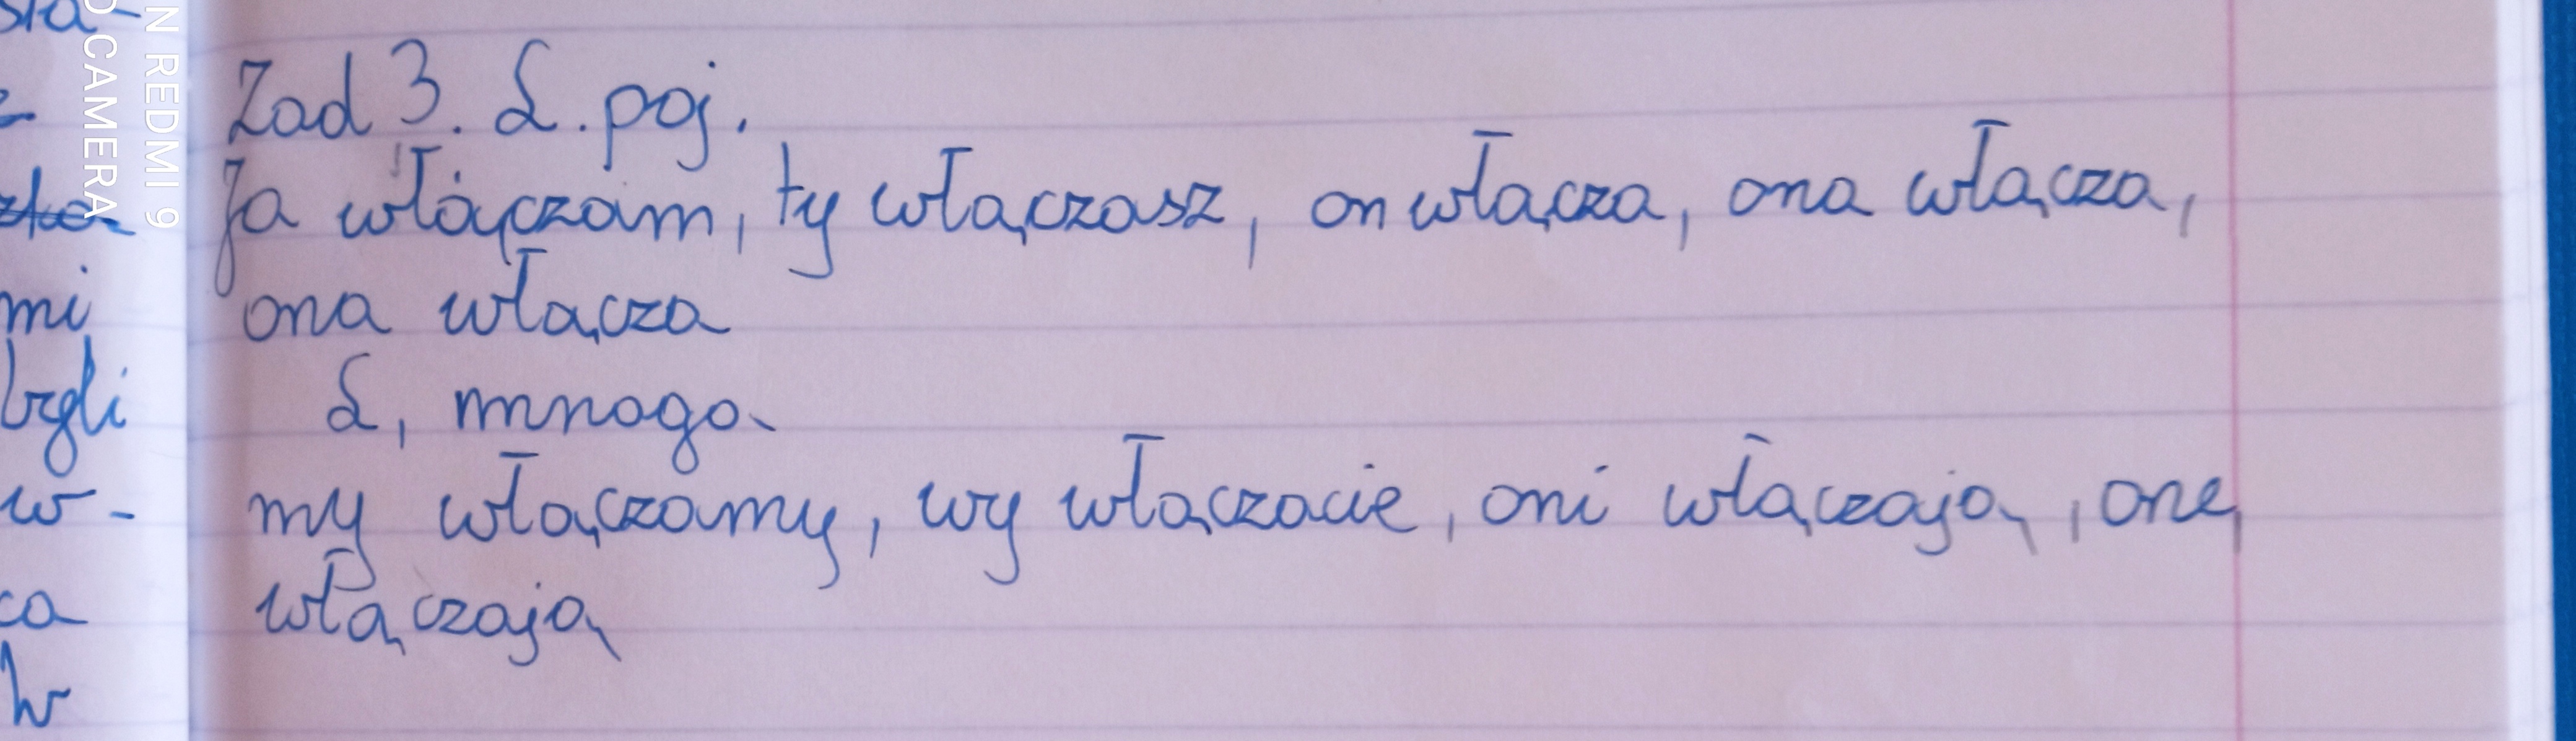 sła-
Zad 3. L. poj.
Ja włączam, ty włączasz, on włącza, ona włącza,
mi ona włącza
L, mnogo.
my włączamy, wy włączacie, oni włączają, one,
w - włączają
ca
w
N REDMI 9
O CAMERA